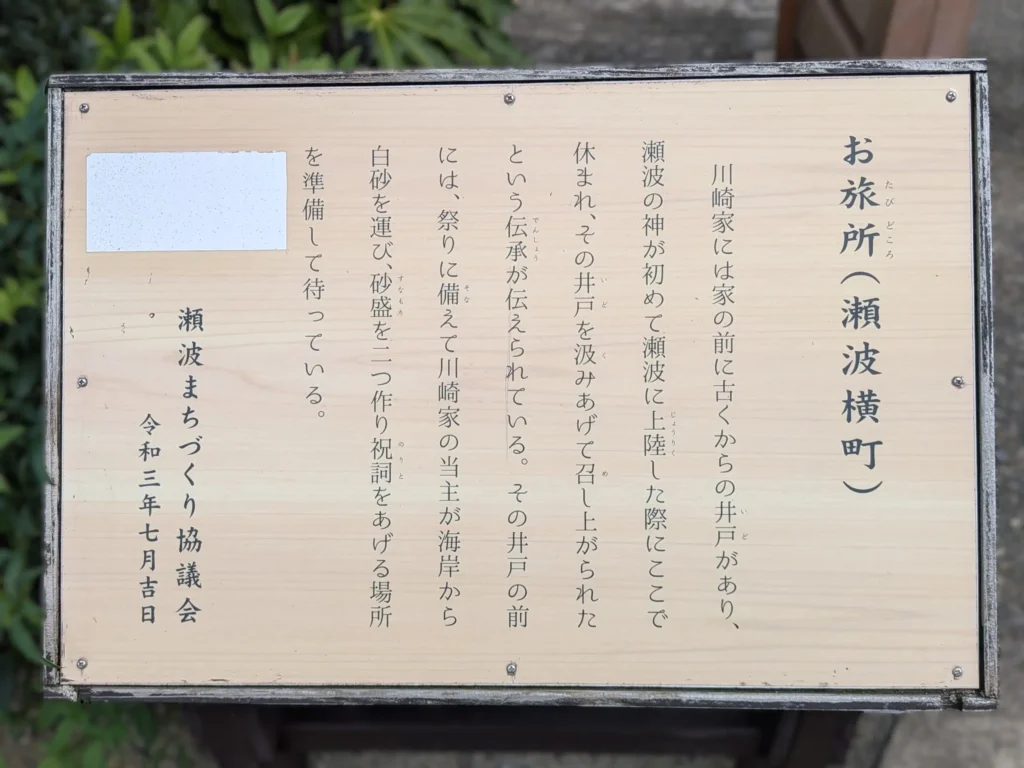 お旅所（瀬波横町）
川崎家には家の前に古くからの井戸があり、
瀬波の神が初めて瀬波に上陸した際にここで
休まれ、その井戸を汲みあげて召し上がられた
という伝承が伝えられている。その井戸の前
には、祭りに備えて川崎家の当主が海岸から
白砂を運び、砂盛を二つ作り祝詞をあげる場所
を準備して待っている。
瀬波まちづくり協議会
令和三年七月吉日